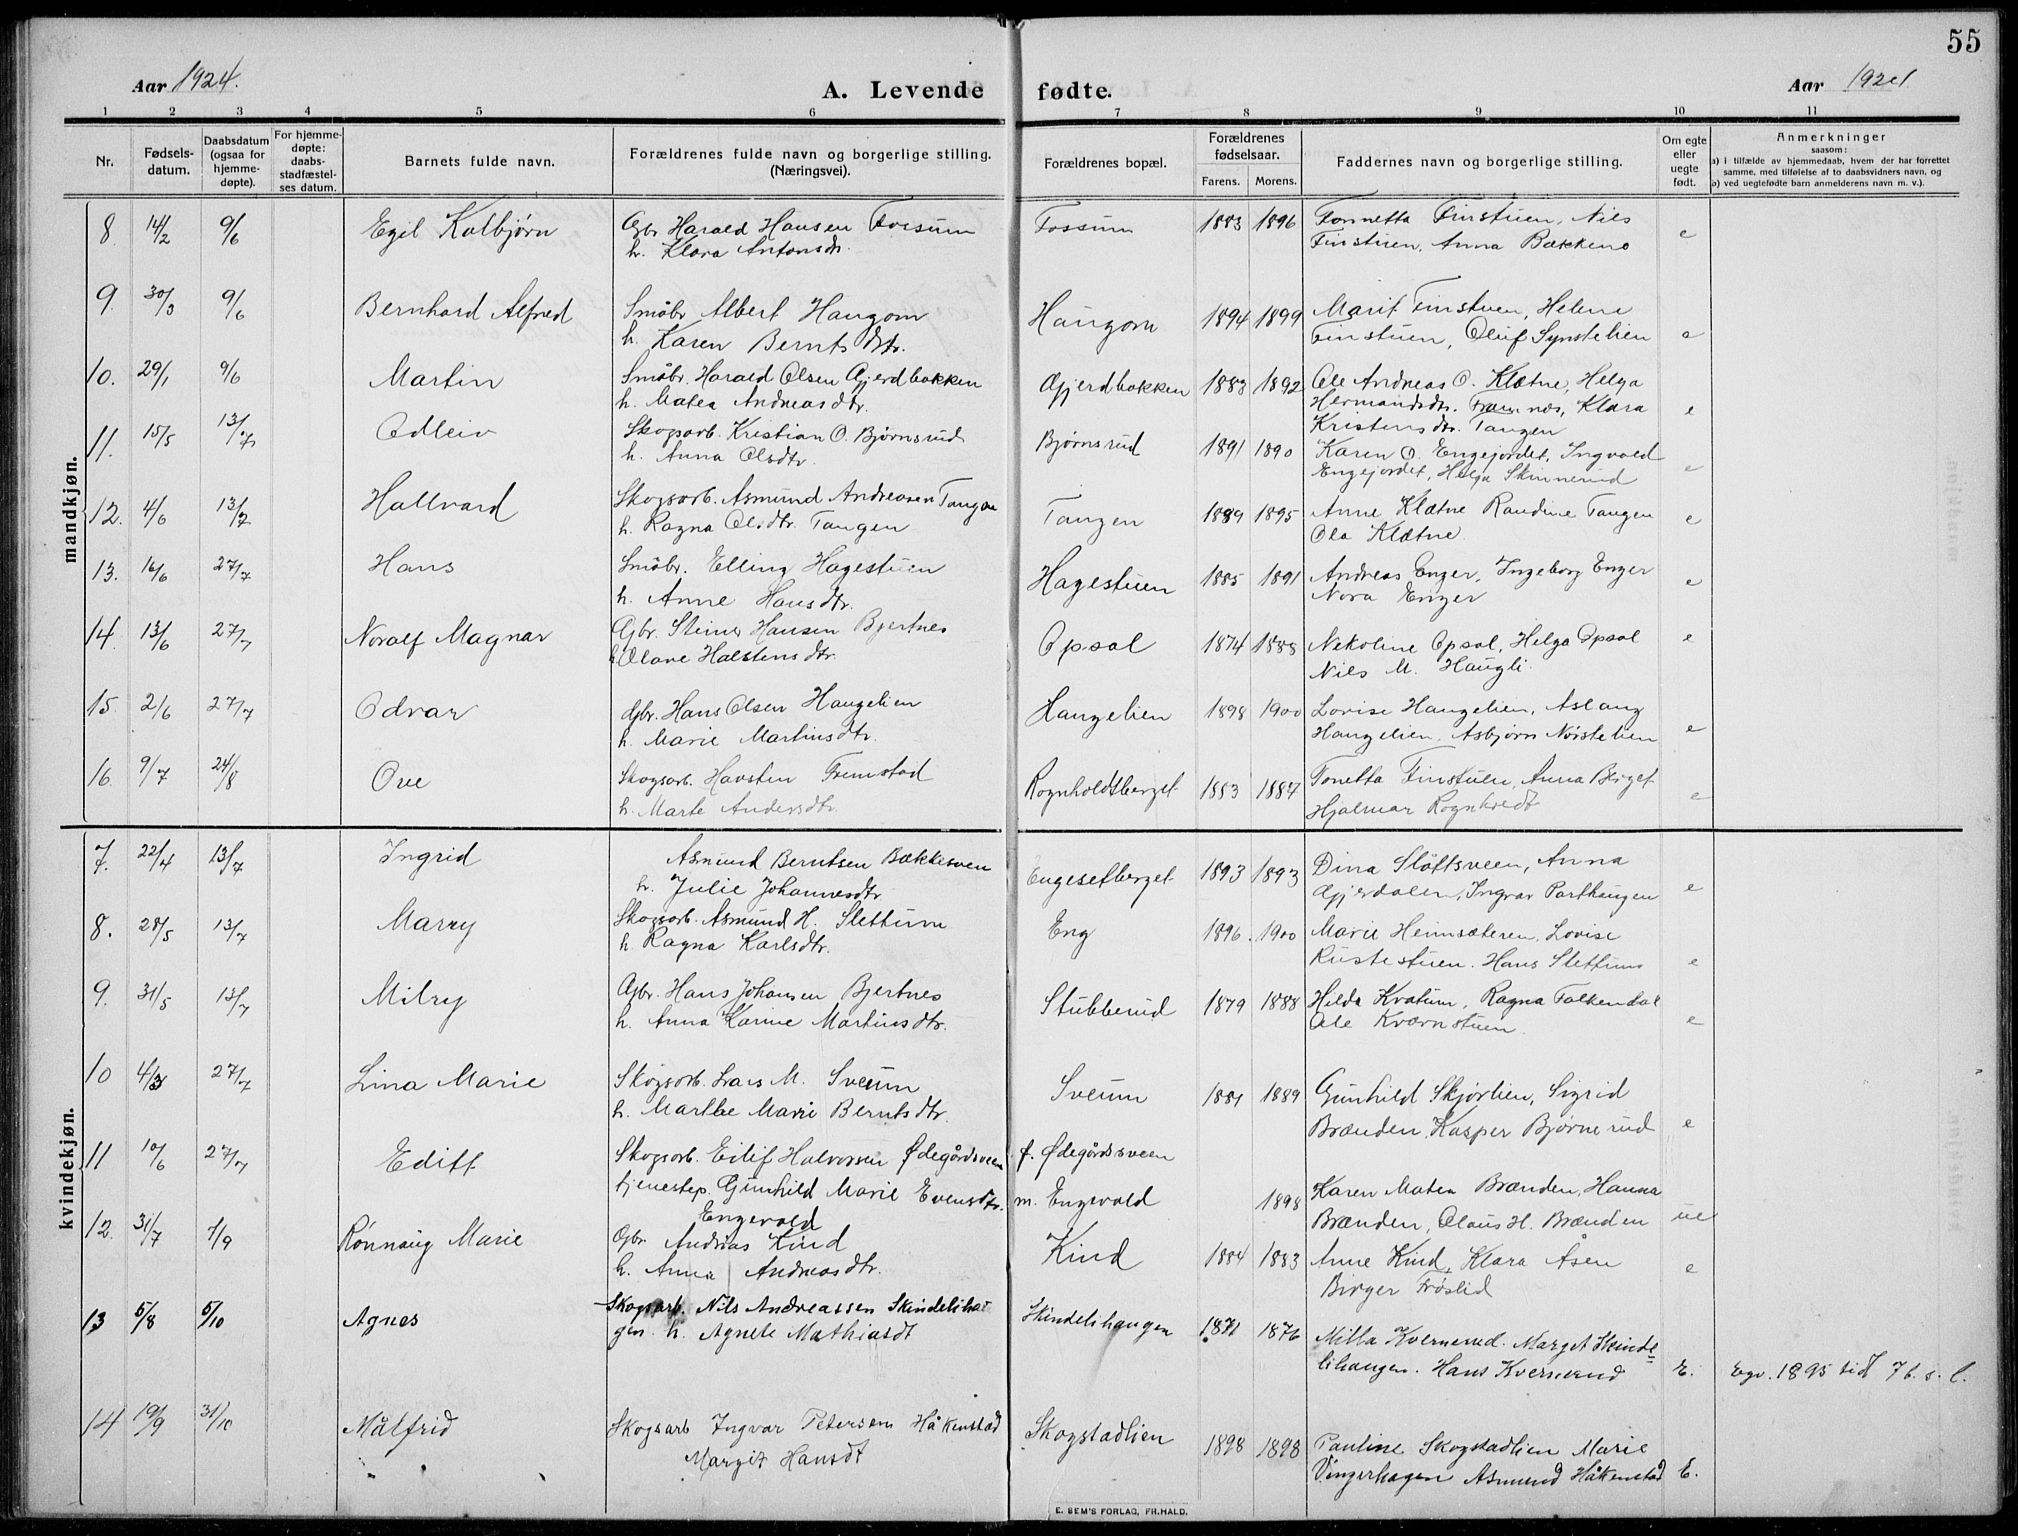 55
Aar 1924.
A. Levende fødte.
Aar 1924.
1 2 3 4 5 6 7 8 9 10 11
Nr.
Fødsels-
datum.
Daabsdatum
(ogsaa for
hjemme-
døpte).
For hjemme-
døpte:
daabs-
stadfæstel-
ses datum.
Barnets fulde navn.
Forældrenes fulde navn og borgerlige stilling.
(Næringsvei).
Forældrenes bopæl.
Forældrenes
fødselsaar.
Farens. Morens.
Faddernes navn og borgerlige stilling.
Om egte
eller
uegte
født.
Anmerkninger
saasom:
a) i tilfælde av hjemmedaab, hvem der har forrettet
samme, med tilføielse af to daabsvidners navn, og
b) ved uegtefødte barn anmelderens navn m. v.).
mandkjøn.
8 14/2 9/6 Egil Kolbjørn Gbr. Harald Hansen Fossum Fossum 1883 1896 Tonnetta Finstuen, Nils
h. Klara Antonsdtr. Finstuen, Anna Bækkene e
9. 30/3 9/6 Bernhard Alfred Småbr. Albert Haugom Haugom 1894 1899 Marit Finstuen, Helene
h. Karen Berntsdtr. Finstuen, Oluf Synstelien e
10. 29/1 9/6 Martin Småbr. Harald Olsen Gjerdbakken Gjerdbakken 1883 1892 Ole Andreas O. Klætne, Helga
h. Matea Andreasdtr. Hermandsdtr. Framnæs, Klara e
Kristensdtr. Tangen
11. 15/5 13/7 Odleiv Skogsarb. Kristian O. Bjørnsrud Bjørnsrud 1891 1890 Karen O. Engejordet, Ingvald
h. Anna Olsdtr. Engejordet, Helga Skinnerud e
12. 4/6 13/7 Hallvard Skogsarb. Asmund Andreasen Tangen Tangen 1889 1895 Anne Klætne Randine Tangen e
h. Ragna Olsdtr. Tangen Ola Klætne
13. 16/6 27/7 Hans Småbr. Elling Hagestuen Hagestuen 1885 1891 Andreas Enger, Ingeborg Enger e
h. Anne Hansdtr. Nora Enger
14. 13/6 27/7 Noralf Magnar Gbr. Steiner Hansen Bjertnes Opsal 1874 1888 Nekoline Opsal, Helga Opsal e
h. Olave Halstensdtr. Niels M. Haugli
15. 2/6 27/7 Odvar Gbr. Hans Olsen Haugelien Haugelien 1898 1900 Lovise Haugelien, Aslaug
h. Marie Martinsdtr. Haugelien, Asbjørn Nørstelien e
16. 9/7 24/8 Ove Skogsarb. Havsten Fremstad Rognholdtberget 1883 1887 Tonetta Finstuen, Anna Berget
h. Marte Andersdtr. Hjalmar Rognholdt e
kvindekjøn.
7. 22/4 13/7 Ingrid Asmund Berntsen Bækkesveen Engesetberget 1893 1893 Dina Slåttsveen, Anna
h. Julie Johannesdtr. Gjerdalen, Ingvar Parthaugen e
8. 28/5 13/7 Marry Skogsarb. Asmund H. Slettum Eng 1896. 1900 Marie Hennsæteren, Lovise
h. Ragna Karlsdtr. Rustestuen. Hans Slettum e
9. 31/5 13/7 Milry Gbr. Hans Johansen Bjertnes Stubberud 1879 1888 Hilda Kvatum, Ragna Falkendal
h. Anna Karine Martinsdtr. Ole Kværnstuen. e
10 4/3 27/7 Lina Marie Skogsarb. Lars M. Sveum Sveum 1881 1889 Gunhild Skjørlien, Sigrid
h. Marthe Marie Berntsdtr. Brænden, Kasper Bjørnerud e
11 10/6 27/7 Editt Skogsarb. Eilif Halvorsen Ødegårdsveen f. Ødegårdsveen
tjenestep. Gunhild Marie Evensdtr. m. Engevold 1898 Karen Matea Brænden, Hanna
Engevold Brænden, Olaus H. Brænden ue
12. 31/7 7/9 Rønnaug Marie Gbr. Andreas Kind Kind 1884 1883 Anne Kind, Klara Åsen e
h. Anna Andreasdtr. Birger Frøslid
13 5/8 5/10 Agnes Skogsarb. Nils Andreassen Skindelihau- Skindelihaugen 1871 1876 Milla Kvernerud. Marget Skinde-
gen. h. Agnete Mathiasdt lihaugen. Hans Kvernerud E. Egv. 1895 tidl 7 b. s. l.
14 19/9 31/10 Målfrid Skogsarb Ingvar Petersen Håkenstad Skogstadlien 1898 1898 Pauline Skogstadlien Marie
Margit Hansdt Vingerhagen Asmund Håkenstad E.
E. SEM'S FORLAG, FR.HALD.